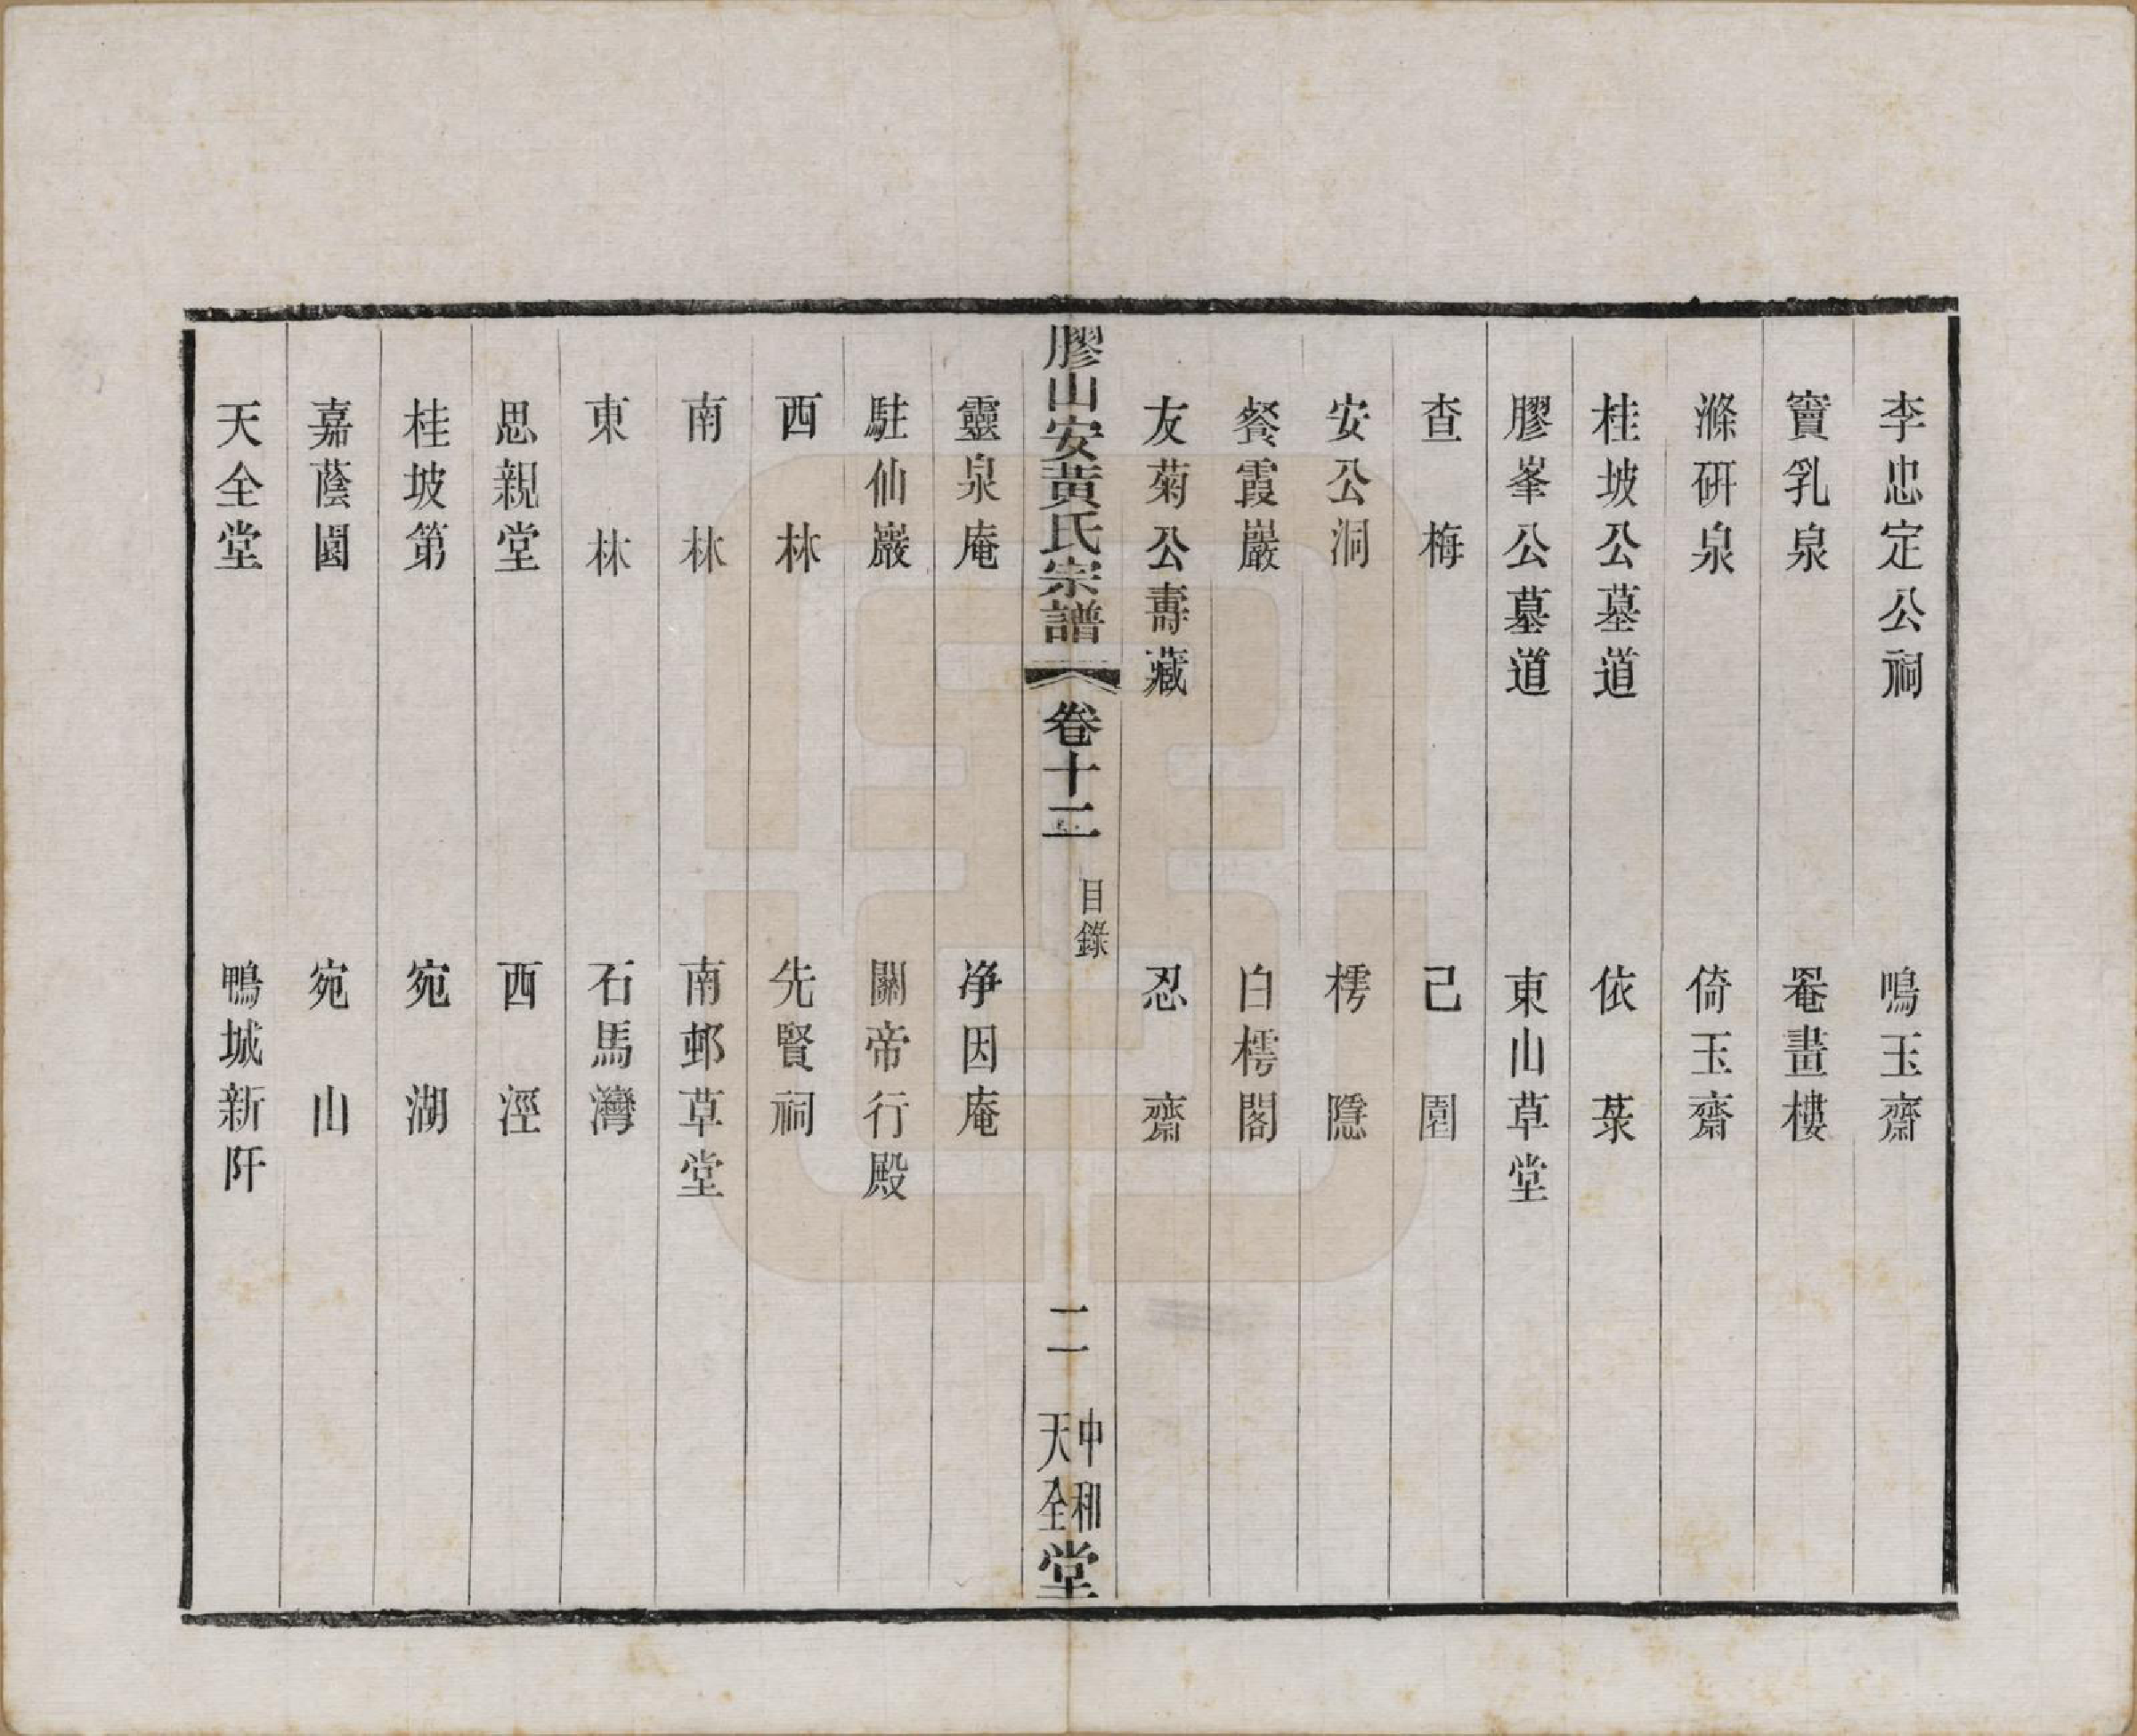 李忠定公祠　鳴玉齋
竇乳泉　罨畫樓
滌硏泉　倚玉齋
桂坡公墓道　依菉
膠峯公墓道　東山草堂
查梅　己園
安公洞　樗隱
餐霞巖　白樗閣
友菊公壽藏　忍齋
膠山安黃氏宗譜　卷十二　目錄　二　中和天全堂
靈泉庵　净因庵
駐仙巖　關帝行殿
西林　先賢祠
南林　南邨草堂
東林　石馬灣
思親堂　西涇
桂坡第　宛湖
嘉蔭園　宛山
天全堂　鴨城新阡